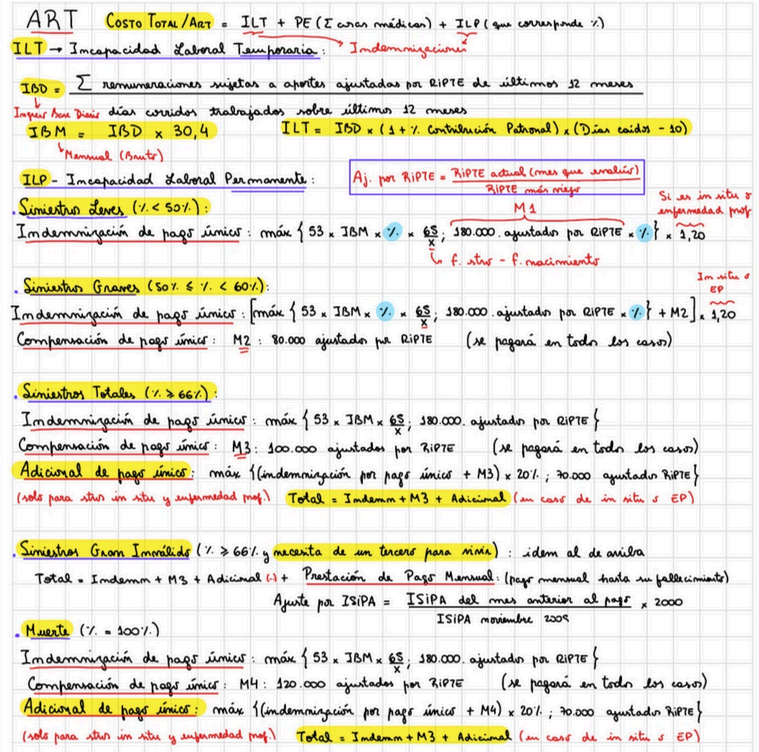 ART COSTO TOTAL/ART = ILT + PE (Σ curas médicas) + ILP (que corresponde %)
ILT → Incapacidad Laboral Temporaria: Indemnizaciones
IBD = Σ remuneraciones sujetas a aportes ajustadas por RIPTE de últimos 12 meses
Ingreso Base Diario días corridos trabajados sobre últimos 12 meses
IBM = IBD x 30,4 ILT = IBD x (1 + % Contribución Patronal) x (Días caidos - 10)
Mensual (Bruto)
ILP - Incapacidad Laboral Permanente: Aj. por RIPTE = RIPTE actual (mes que evalúo)
RIPTE más viejo
. Siniestros Leves (% < 50%): M1 Si es in situ o enfermedad prof
Indemnización de pago único: máx { 53 x IBM x % x 65/x ; 180.000 ajustado por RIPTE x % } x 1,20
f. stro - f. nacimiento
. Siniestros Graves (50% ≤ % < 60%): In situ o EP
Indemnización de pago único: [máx { 53 x IBM x % x 65/x ; 180.000 ajustado por RIPTE x % } + M2] x 1,20
Compensación de pago único: M2: 80.000 ajustado por RIPTE (se pagará en todos los casos)
. Siniestros Totales (% ≥ 66%):
Indemnización de pago único: máx { 53 x IBM x 65/x ; 180.000 ajustado por RIPTE }
Compensación de pago único: M3: 100.000 ajustados por RIPTE (se pagará en todos los casos)
Adicional de pago único: máx {(indemnización por pago único + M3) x 20% ; 70.000 ajustado RIPTE}
(solo para stros in situ y enfermedad prof.) Total = Indemn + M3 + Adicional (en caso de in situ o EP)
. Siniestros Gran Inválido (% ≥ 66% y necesita de un tercero para vivir): idem al de arriba
Total = Indemn + M3 + Adicional (-) + Prestación de Pago Mensual: (pago mensual hasta su fallecimiento)
Ajuste por ISIPA = ISIPA del mes anterior al pago x 2000
ISIPA noviembre 2009
. Muerte (% = 100%)
Indemnización de pago único: máx { 53 x IBM x 65/x ; 180.000 ajustado por RIPTE }
Compensación de pago único: M4: 120.000 ajustados por RIPTE (se pagará en todos los casos)
Adicional de pago único: máx {(indemnización por pago único + M4) x 20% ; 70.000 ajustado RIPTE}
(solo para stros in situ y enfermedad prof.) Total = Indemn + M3 + Adicional (en caso de in situ o EP)